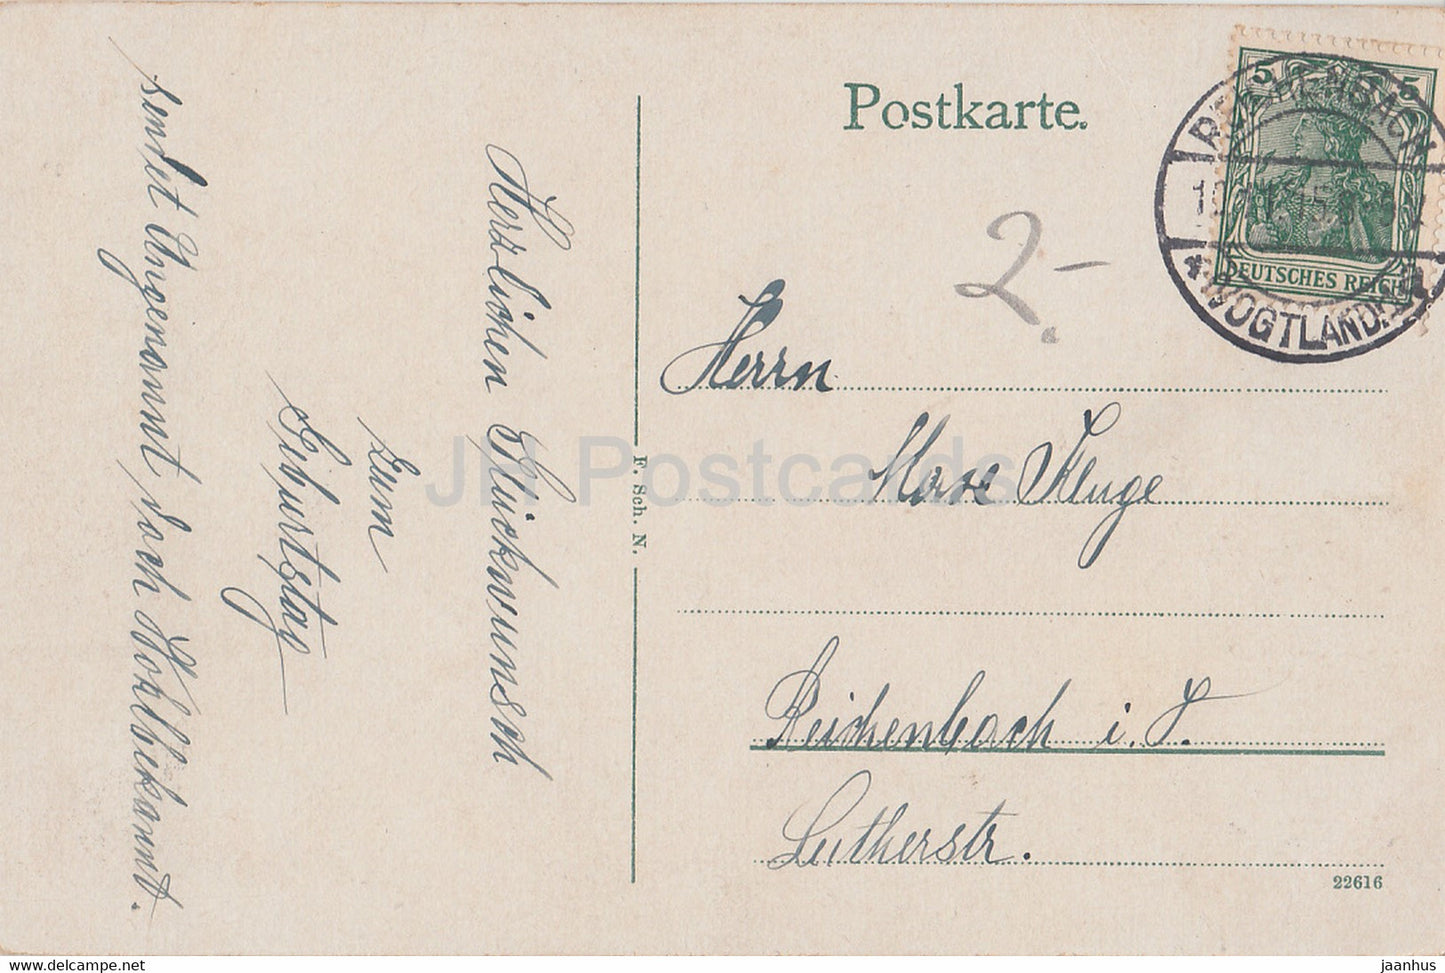 Postkarte.
5 5
REICHENBACH
DEUTSCHES REICH
(VOGTLAND)
2.-
Herrn
Max Kluge
Reichenbach i. V.
Lutherstr.
22616
F. Sch. N.
Herzlichen Glückwunsch
zum
Geburtstag
sendet Ungenannt doch Wohlbekannt.
JH Postcards
www.delcampe.net
jaanhus